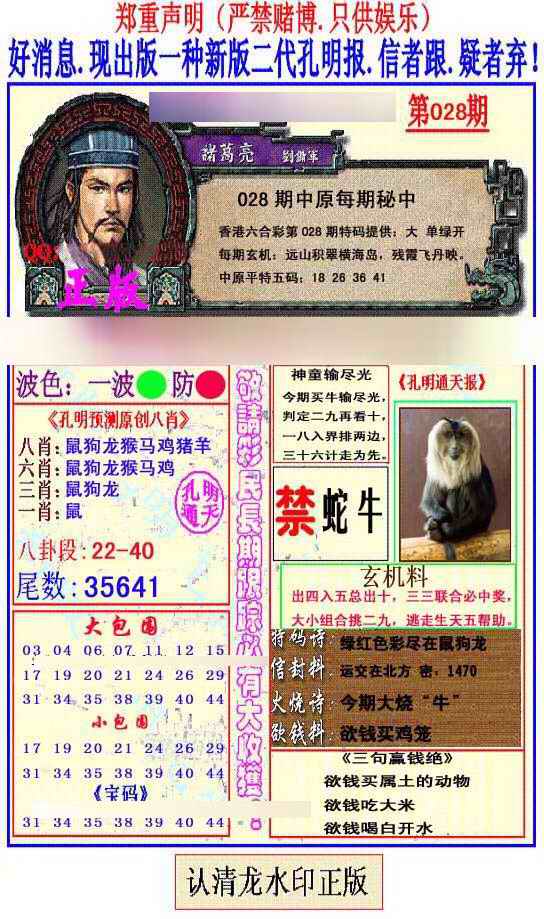 郑重声明（严禁赌博.只供娱乐）
好消息.现出版一种新版二代孔明报.信者跟.疑者弃!
第028期
諸葛亮 劉備軍
028 期中原每期秘中
香港六合彩第 028 期特码提供：大 单绿开
每期玄机：远山积翠横海岛，残霞飞丹映。
中原平特五码：18 26 36 41
正版
波色：一波 防
《孔明预测原创八肖》
八肖:鼠狗龙猴马鸡猪羊
六肖:鼠狗龙猴马鸡
三肖:鼠狗龙
一肖:鼠
孔明
通天
八卦段:22-40
尾数:35641
大包围
03 04 06 07 11 12 15
17 19 20 21 24 26 29
31 34 35 38 39 40 44
小包围
17 19 20 21 24 26 29
31 34 35 38 39 40 44
《宝码》
31 34 35 38 39 40 44
敬請彩民長期跟踪必有大收獲!
神童输尽光
今期买牛输尽光，
判定二九再看十，
一八入界排两边，
三十六计走为先。
《孔明通天报》
禁 蛇牛
玄机料
出四入五总出十，三三联合必中奖，
大小组合挑二九，逃走生天五帮助。
特码诗：绿红色彩尽在鼠狗龙
信封料．运交在北方 密．1470
火烧诗：今期大烧“牛”
欲钱料：欲钱买鸡笼
《三句赢钱绝》
欲钱买属土的动物
欲钱吃大米
欲钱喝白开水
认清龙水印正版